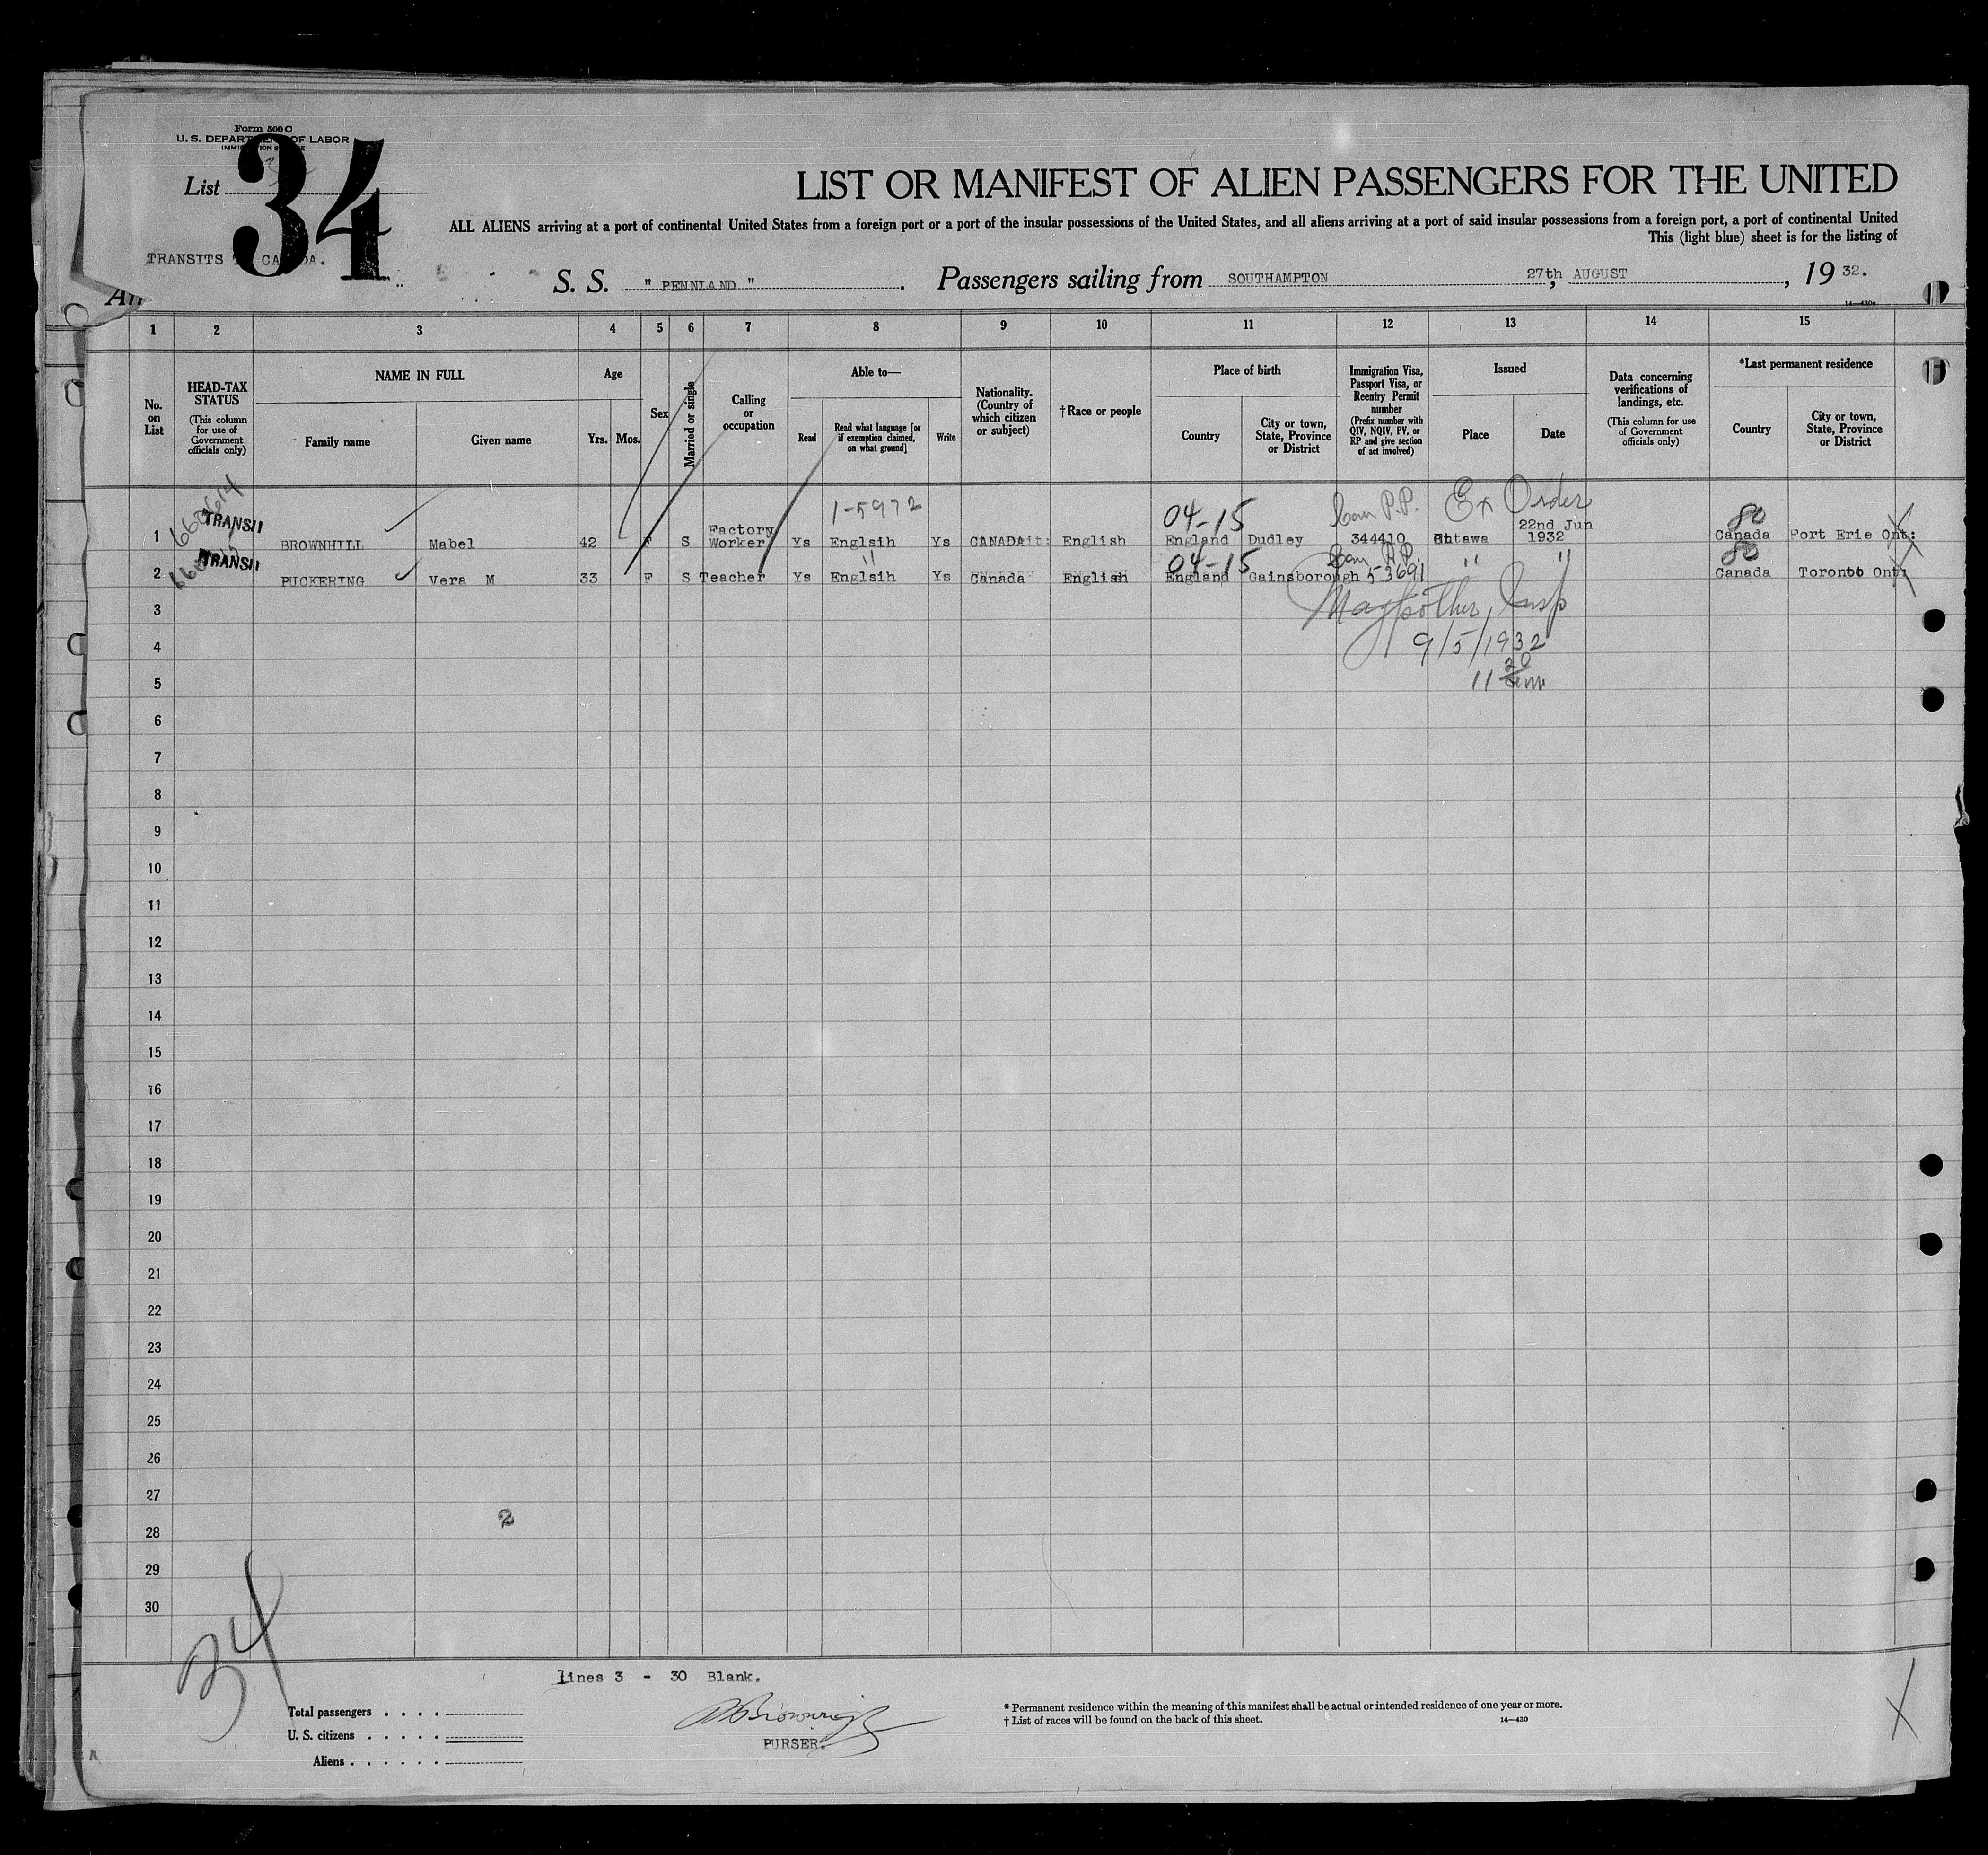 Form 500 C
U. S. DEPARTMENT OF LABOR
List 34
TRANSITS CANADA.
LIST OR MANIFEST OF ALIEN PASSENGERS FOR THE UNITED
ALL ALIENS arriving at a port of continental United States from a foreign port or a port of the insular possessions of the United States, and all aliens arriving at a port of said insular possessions from a foreign port, a port of continental United
This (light blue) sheet is for the listing of
S. S. " PENNLAND " . Passengers sailing from SOUTHAMPTON 27th, AUGUST , 19 32.
1 2 3 4 5 6 7 8 9 10 11 12 13 14 15
No. on List
HEAD-TAX STATUS
(This column for use of Government officials only)
NAME IN FULL
Family name Given name
Age
Yrs. Mos.
Sex
Married or single
Calling or occupation
Able to—
Read
Read what language [or if exemption claimed, on what ground]
Write
Nationality. (Country of which citizen or subject)
† Race or people
Place of birth
Country
City or town, State, Province or District
Immigration Visa, Passport Visa, or Reentry Permit number
(Prefix number with QIV, NQIV, PV, or RP and give section of act involved)
Issued
Place Date
Data concerning verifications of landings, etc.
(This column for use of Government officials only)
*Last permanent residence
Country
City or town, State, Province or District
1-5972 04-15 Can P.P. Ex Order 80
1 TRANSIT BROWNHILL Mabel 42 F S Factory Worker Ys Englsih Ys CANADA English England Dudley 344410 Ottawa 22nd Jun 1932 Canada Fort Erie Ont:
" 04-15 Can P.P. 80
2 TRANSIT PUCKERING Vera M 33 F S Teacher Ys Englsih Ys Canada English England Gainsborough 53691 " " Canada Toronto Ont:
Insp
9/5/1932
11 20 am
3
4
5
6
7
8
9
10
11
12
13
14
15
16
17
18
19
20
21
22
23
24
25
26
27
2
28
29
30
34
lines 3 - 30 Blank.
Total passengers . . . .
U. S. citizens . . . . .
Aliens . . . . . .
PURSER.
* Permanent residence within the meaning of this manifest shall be actual or intended residence of one year or more.
† List of races will be found on the back of this sheet.
14—430